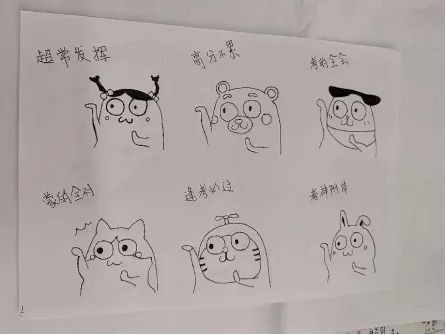 超常发挥
高分不累
考的全会
蒙的全对
逢考必过
考神附体